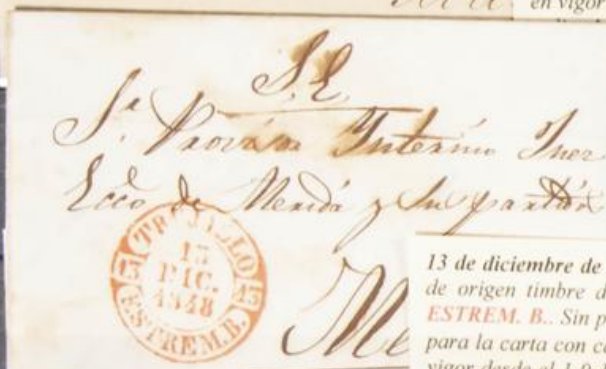 en vigor
S. E.
Sr. Provisor Interino Juez
Ecco de Merida y Su partido
TRUJILLO
13
DIC.
1848
13 13
ESTREM.B.
Me
13 de diciembre de
de origen timbre d
ESTREM. B.. Sin p
para la carta con ca
vigor desde el 1-9-